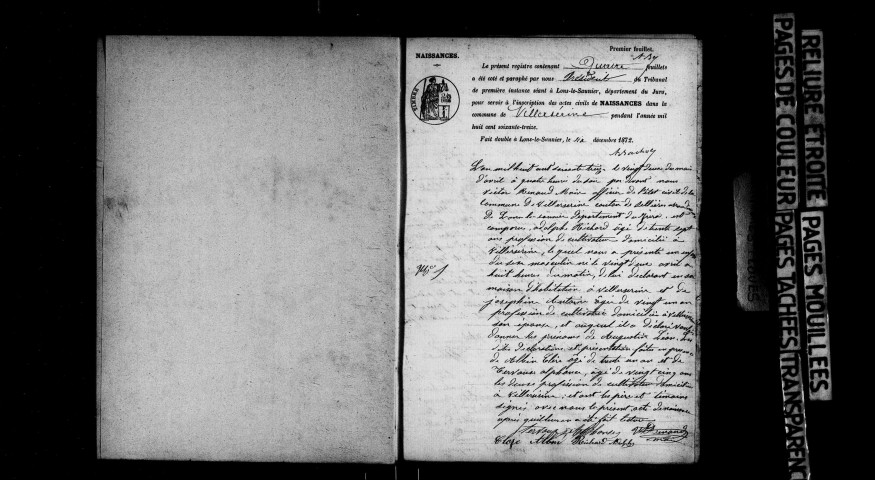 Premier feuillet.
NAISSANCES.
Le présent registre contenant feuillets
a été coté et paraphé par nous Président du Tribunal
de première instance séant à Lons-le-Saunier, département du Jura,
pour servir à l'inscription des actes civils de NAISSANCES dans la
commune de Villerserine pendant l'année mil
huit cent soixante-treize.
Fait double à Lons-le-Saunier, le décembre 1872.
TIMBRE
L'an mil huit cent soixante treize le vingt deux du mois
d'avril à quatre heures du soir par devant nous
Victor Renaud Maire officier de l'état civil de la
commune de Villerserine canton de Sellières
de Lons le saunier département du Jura, est
comparu, adolphe Richard âgé de trente sept
ans profession de cultivateur domicilié à
Villerserine, lequel nous a présenté un enfant
du sexe masculin né le vingt deux avril à
huit heures du matin, de lui déclarant en sa
maison d'habitation à Villerserine et de
joséphine âgée de vingt un an
profession de cultivatrice domiciliée à Villerserine
son épouse, et auquel il a déclaré vouloir
donner les prénoms de Augustin Léon. Les
dites déclarations et présentation faites en présence
de Albin Cloze âgé de trente un an et de
Tervaux alphonse, âgé de vingt cinq ans
les deux profession de cultivateur domiciliés
à Villerserine, et ont les père et témoins
signés avec nous le présent acte de naissance
après qu'il leur en a été fait lecture
N° 1
Alphonse Vor Renaud
Cloze Albin Richard
RELIURE ETROITE PAGES MOUILLEES
PAGES DE COULEUR PAGES TACHEES TRANSPARENC